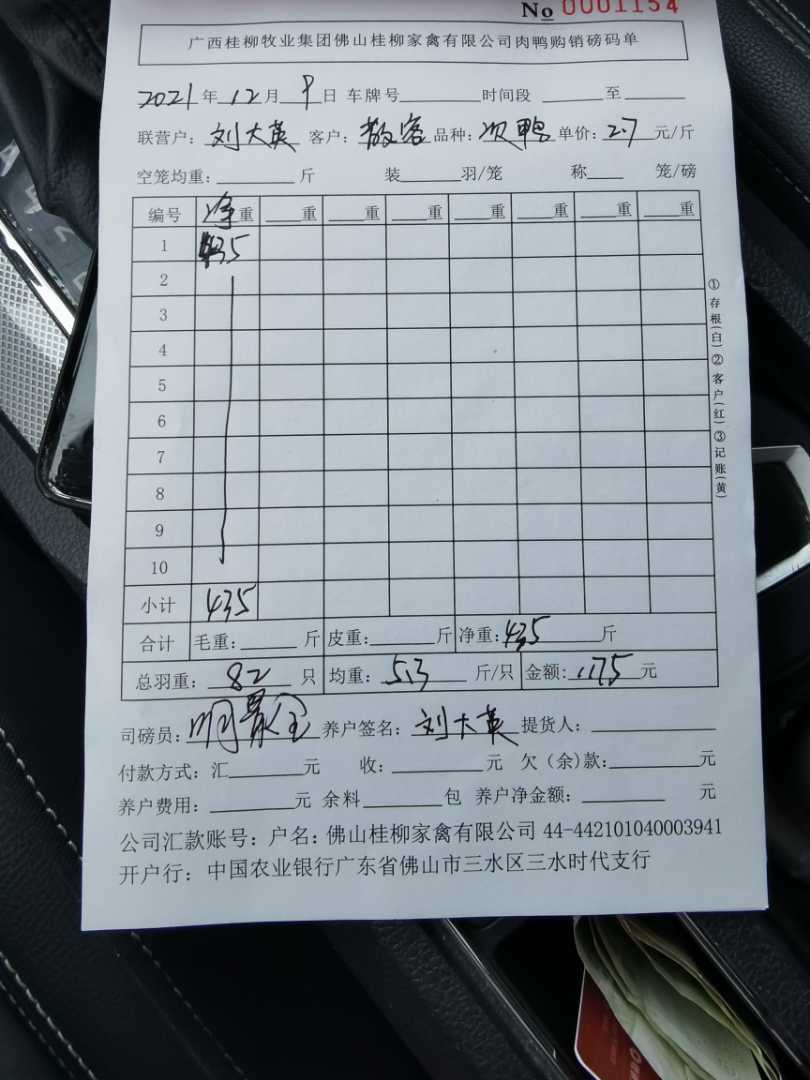 No 0001154
广西桂柳牧业集团佛山桂柳家禽有限公司肉鸭购销磅码单
2021年12月9日 车牌号 时间段 至
联营户:刘大英 客户:散客 品种:次鸭 单价:2.7元/斤
空笼均重: 斤 装 羽/笼 称 笼/磅
编号 净重 重 重 重 重 重 重 重
1 435
2
3
4
5
6
7
8
9
10
小计 435
合计 毛重: 斤 皮重: 斤 净重:435斤
总羽重:82只 均重:5.3斤/只 金额:1175元
司磅员: 养户签名:刘大英 提货人:
付款方式:汇 元 收: 元 欠(余)款: 元
养户费用: 元 余料 包 养户净金额: 元
公司汇款账号:户名:佛山桂柳家禽有限公司 44-442101040003941
开户行:中国农业银行广东省佛山市三水区三水时代支行
①存根(白)②客户(红)③记账(黄)